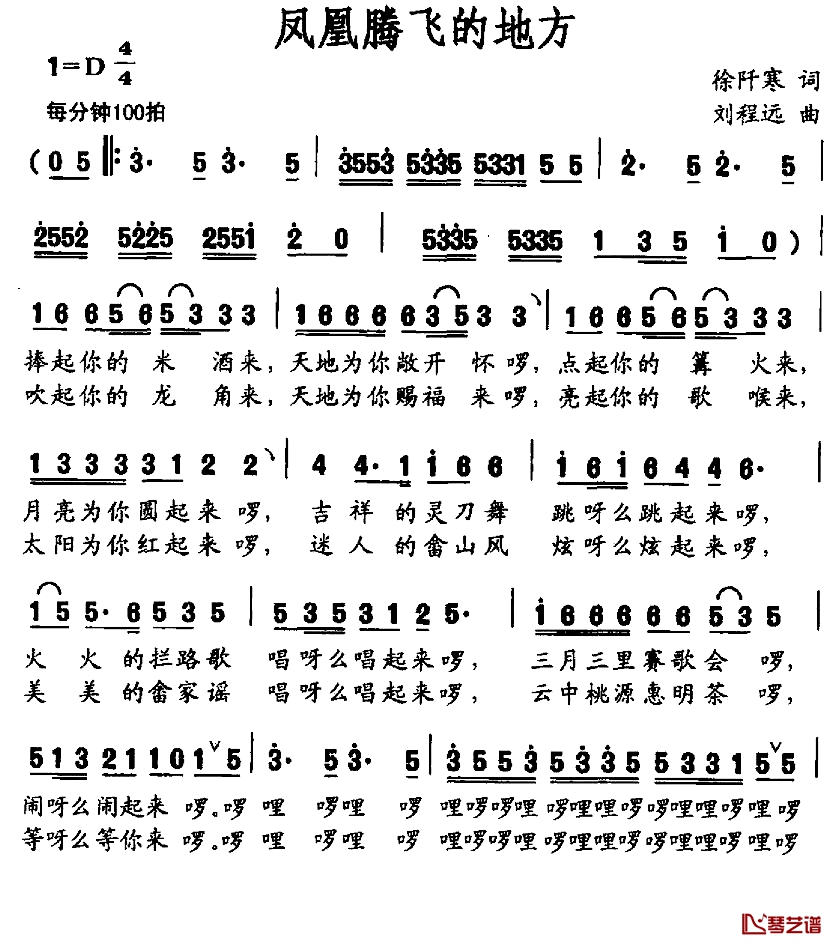 凤凰腾飞的地方
1=D 4/4
徐阡寒 词
每分钟100拍
刘程远 曲
( 0 5 ‖: 3· 5 3· 5 | 3553 5335 5331 5 5 | 2· 5 2· 5 |
2552 5225 2551 2 0 | 5335 5335 1 3 5 1 0 )
1 6 6 5 6 5 3 3 3 | 1 6 6 6 6 3 5 3 3 | 1 6 6 5 6 5 3 3 3 |
捧起你的 米 酒来,天地为你敞开 怀啰,点起你的 篝 火来,
吹起你的 龙 角来,天地为你赐福 来啰,亮起你的 歌 喉来,
1 3 3 3 3 1 2 2 | 4 4· 1 1 6 6 | 1 6 1 6 4 4 6· |
月亮为你圆起来 啰, 吉 祥 的灵刀舞 跳呀么跳起来啰,
太阳为你红起来 啰, 迷 人 的畲山风 炫呀么炫起来啰,
1 5 5· 6 5 3 5 | 5 3 5 3 1 2 5· | 1 6 6 6 6 5 3 5 |
火 火 的拦路歌 唱呀么唱起来啰, 三月三里赛歌会 啰,
美 美 的畲家谣 唱呀么唱起来啰, 云中桃源惠明茶 啰,
5 1 3 2 1 1 0 1 ∨ 5 | 3· 5 3· 5 | 3 5 5 3 5 3 3 5 5 3 3 1 5 ∨ 5 |
闹呀么闹起来 啰。啰 哩 啰哩 啰 哩啰啰哩 啰哩哩啰啰哩哩啰哩 啰
等呀么等你来 啰。啰 哩 啰哩 啰 哩啰啰哩 啰哩哩啰啰哩哩啰哩 啰
琴艺谱